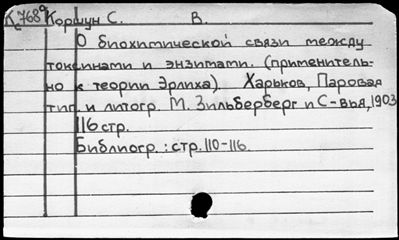 Кс768а Коршун С. В.
О биохимической связи между
токсинами и энзимами. (применитель-
но к теории Эрлиха). Харьков, Паровая
тип. и литогр. М. Зильберберг и С-вья, 1903
116 стр.
Библиогр.: стр. 110-116.